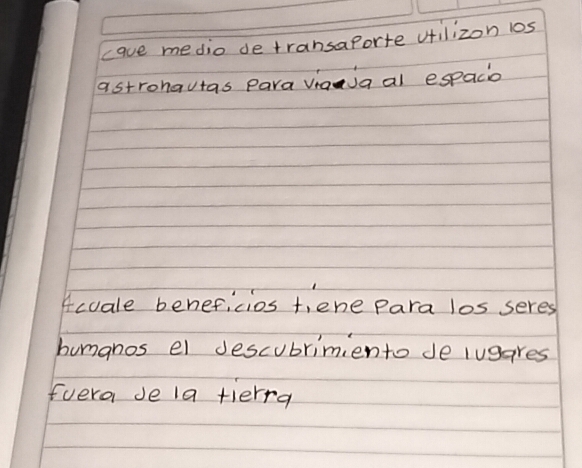 ¿que medio de transaporte utilizan los
astronautas para viaja al espacio
¿cuale beneficios tiene para los seres
humanos el descubrimiento de lugares
fuera de la tierra